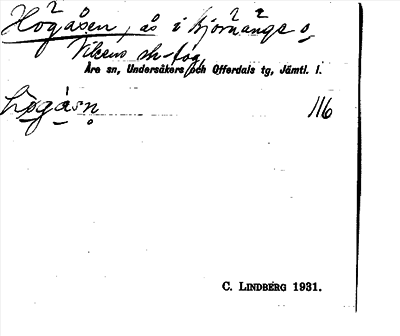 Högåsen, ås i Björnänge o.
Vikens sk-fog,
Åre sn, Undersåkers och Offerdals tg, Jämtl. l.
högåsn 116
C. LINDBERG 1931.